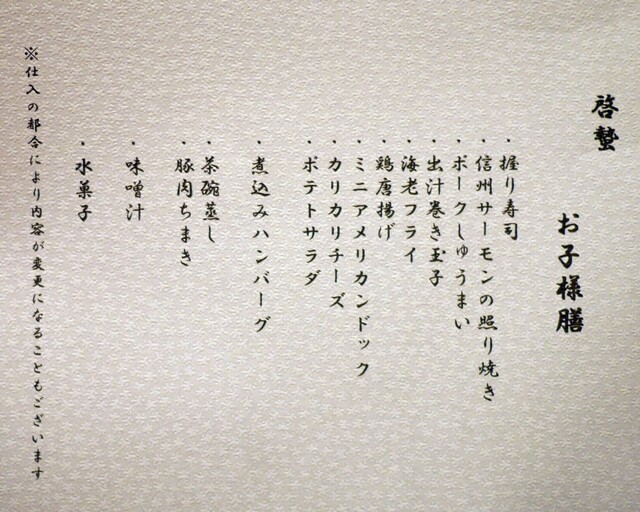 啓蟄
お子様膳
・握り寿司
・信州サーモンの照り焼き
・ポークしゅうまい
・出汁巻き玉子
・海老フライ
・鶏唐揚げ
・ミニアメリカンドック
・カリカリチーズ
・ポテトサラダ
・煮込みハンバーグ
・茶碗蒸し
・豚肉ちまき
・味噌汁
・水菓子
※仕入の都合により内容が変更になることもございます